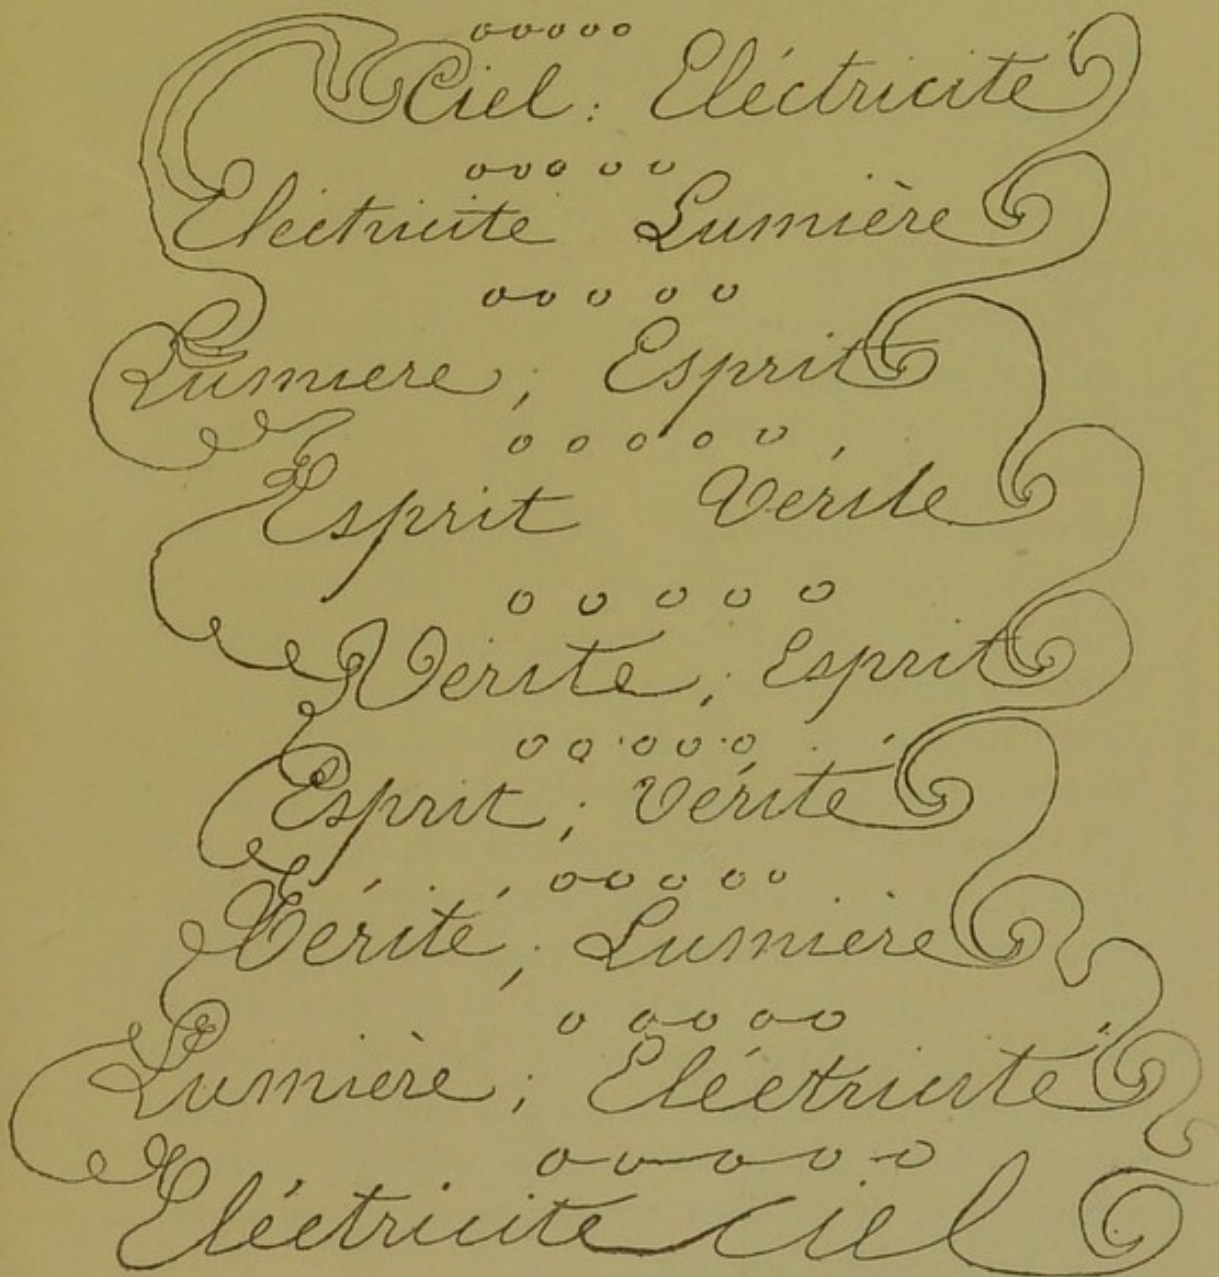 Ciel : Eléctricité
Eléctricité Lumière
Lumiere ; Esprit
Esprit Vérité
Vérité ; Esprit
Esprit ; Vérité
Vérité ; Lumière
Lumière ; Eléctricité
Eléctricité Ciel